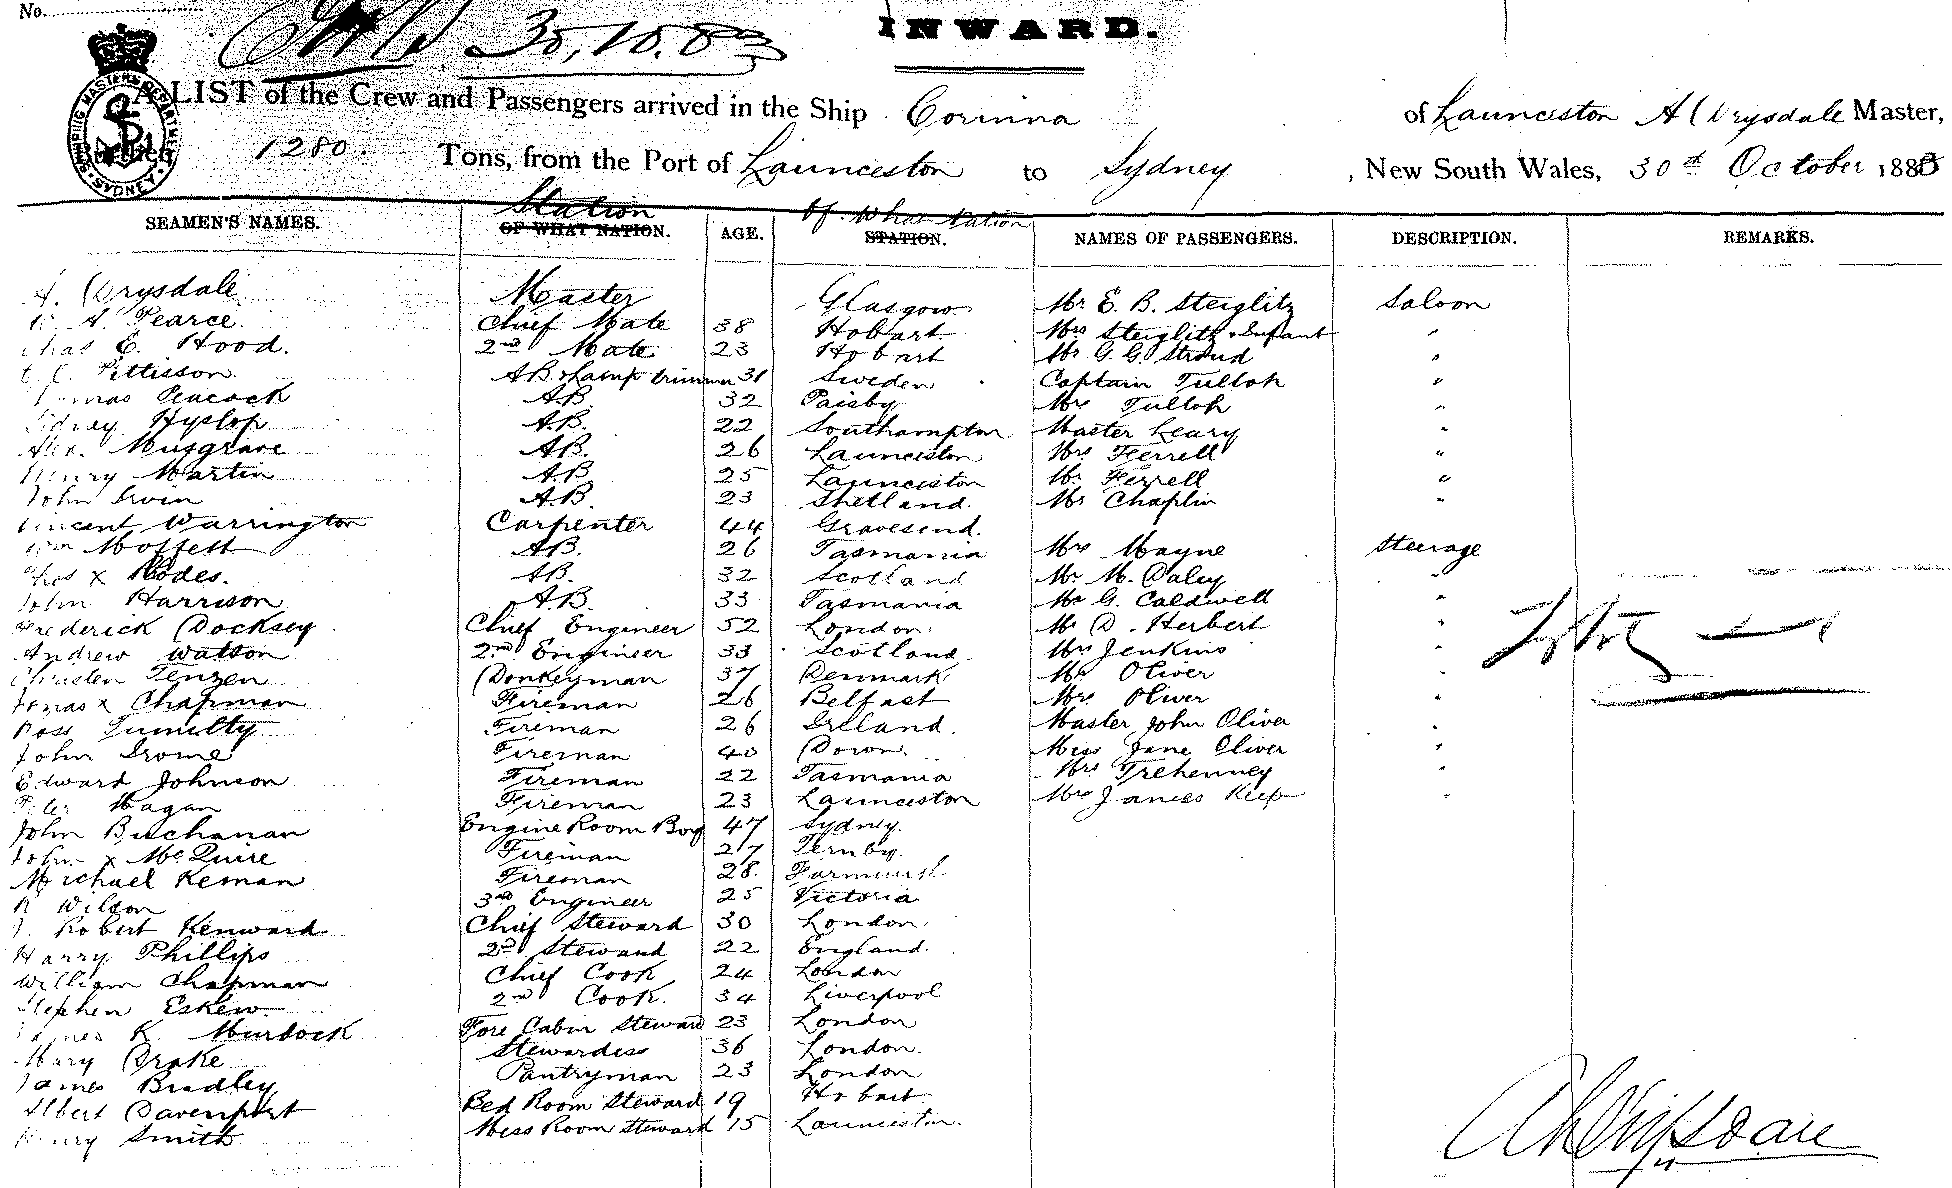 No.
30.10.83
INWARD.
SHIPPING MASTERS DEPARTMENT SYDNEY
A LIST of the Crew and Passengers arrived in the Ship Corinna of Launceston A Drysdale Master,
Burthen 1280 Tons, from the Port of Launceston to Sydney, New South Wales, 30th October 1883
Station Of What Nation
SEAMEN'S NAMES. OF WHAT NATION. AGE. STATION. NAMES OF PASSENGERS. DESCRIPTION. REMARKS.
A. Drysdale Master Glasgow Mr E. B. Steiglitz Saloon
A. Pearce. Chief Mate 38 Hobart Mrs Steiglitz & Infant "
Chas E. Hood. 2nd Mate 23 Hobart Mr G. G. Stroud "
Pettisson AB & Lamp trimmer 31 Sweden Captain Tulloh "
Thomas Peacock A.B. 32 Paisby Mrs Tulloh "
Sidney Hyslop A.B. 22 Southampton Master Leary "
Alex. Musgrave A.B. 26 Launceston Mrs Ferrell "
Henry Martin A.B. 25 Launceston Mr Ferrell "
John Irvin A.B. 23 Shetland. Mr Chaplin "
Vincent Warrington Carpenter 44 Gravesend.
Wm Moffett A.B. 26 Tasmania Mrs Mayne Steerage
Chas x Rodes. AB. 32 Scotland Mr M. Daley "
John Harrison A.B. 33 Tasmania Mr G. Caldwell "
Frederick Docksey Chief Engineer 52 London Mr D. Herbert "
Andrew Watson 2nd Engineer 33 Scotland Mrs Jenkins "
Christen Tenzen Donkeyman 37 Denmark Mr Oliver "
Thomas x Chapman Fireman 26 Belfast Mrs Oliver "
Ross Tumilty Fireman 26 Ireland. Master John Oliver "
John Frome Fireman 40 Miss Jane Oliver "
Edward Johnson Fireman 22 Tasmania Mrs Trehenney "
Peter Hagan Fireman 23 Launceston Mrs James Keep "
John Buchanan Engine Room Boy 47 Sydney.
John x McQuire Fireman 27 Ternby
Michael Keman Fireman 28
R Wilson 3rd Engineer 25 Victoria
J. Robert Kenward Chief Steward 30 London
Harry Phillips 2nd Steward 22 England.
William Chapman Chief Cook 24 London
Stephen Eskew 2nd Cook. 34 Liverpool
James K. Murdock Fore Cabin Steward 23 London
Mary Drake Stewardess 36 London.
James Bradley Pantryman 23 London
Albert Davenport Bed Room Steward 19 Hobart
Henry Smith Mess Room Steward 15 Launceston.
A Drysdale